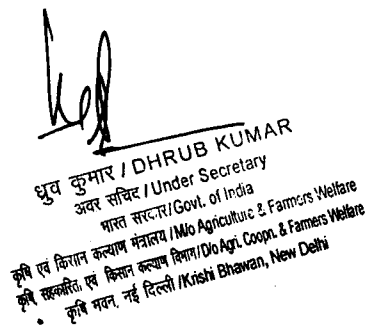 ध्रुव कुमार / DHRUB KUMAR
अवर सचिव / Under Secretary
भारत सरकार/Govt. of India
कृषि एवं किसान कल्याण मंत्रालय / M/o Agriculture & Farmers Welfare
कृषि, सहकारिता, एवं किसान कल्याण विभाग/D/o Agri. Coopn. & Farmers Welfare
कृषि भवन, नई दिल्ली /Krishi Bhawan, New Delhi